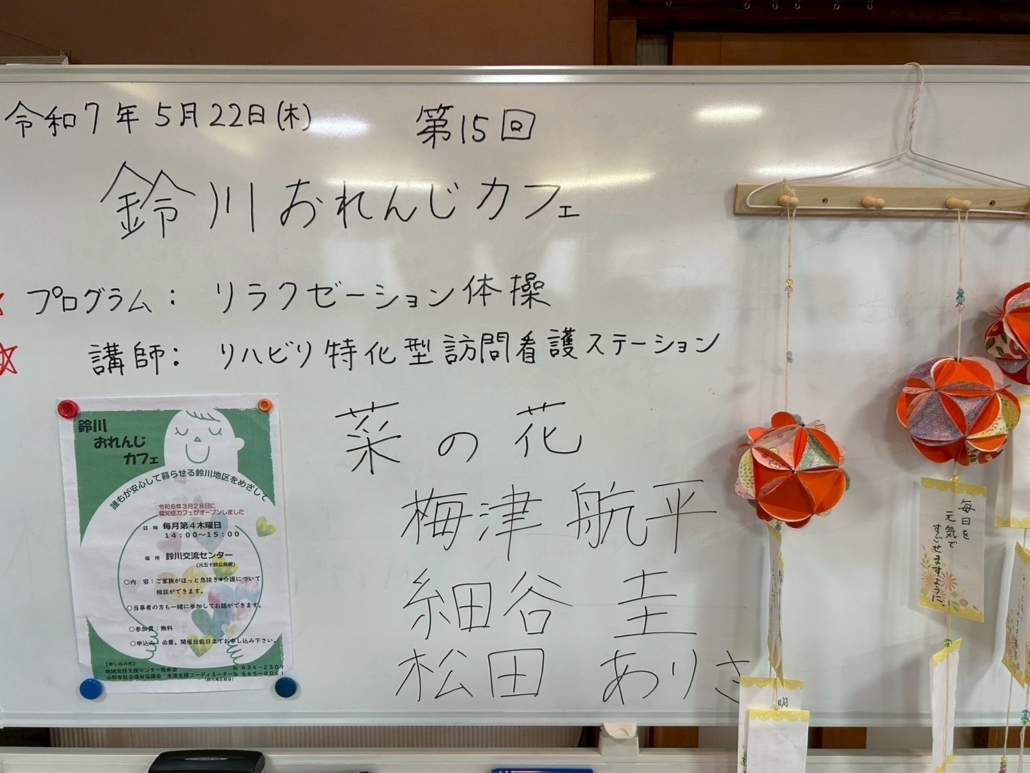 令和7年5月22日(木) 第15回
鈴川おれんじカフェ
プログラム: リラクゼーション体操
講師: リハビリ特化型訪問看護ステーション
菜の花
梅津 航平
細谷 圭
松田 ありさ
鈴川
おれんじ
カフェ
誰もが安心して暮らせる鈴川地区をめざして
令和6年3月28日に
認知症カフェがオープンしました
日時 毎月第4木曜日
14:00〜15:00
場所 鈴川交流センター
○内 容:ご家族がほっと息抜き♥介護について
相談ができます。
○当事者の方も一緒に参加してお話ができます。
○参加費:無料
○申込み:必要。開催日前日までお申し込み下さい。
【申し込み先】
毎日を
元気で
すごせますように、
明